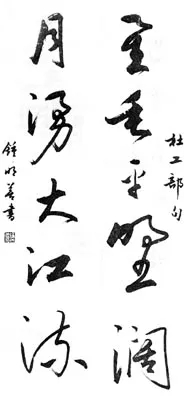 星垂平野阔
月湧大江流
杜工部句
鍾明善書